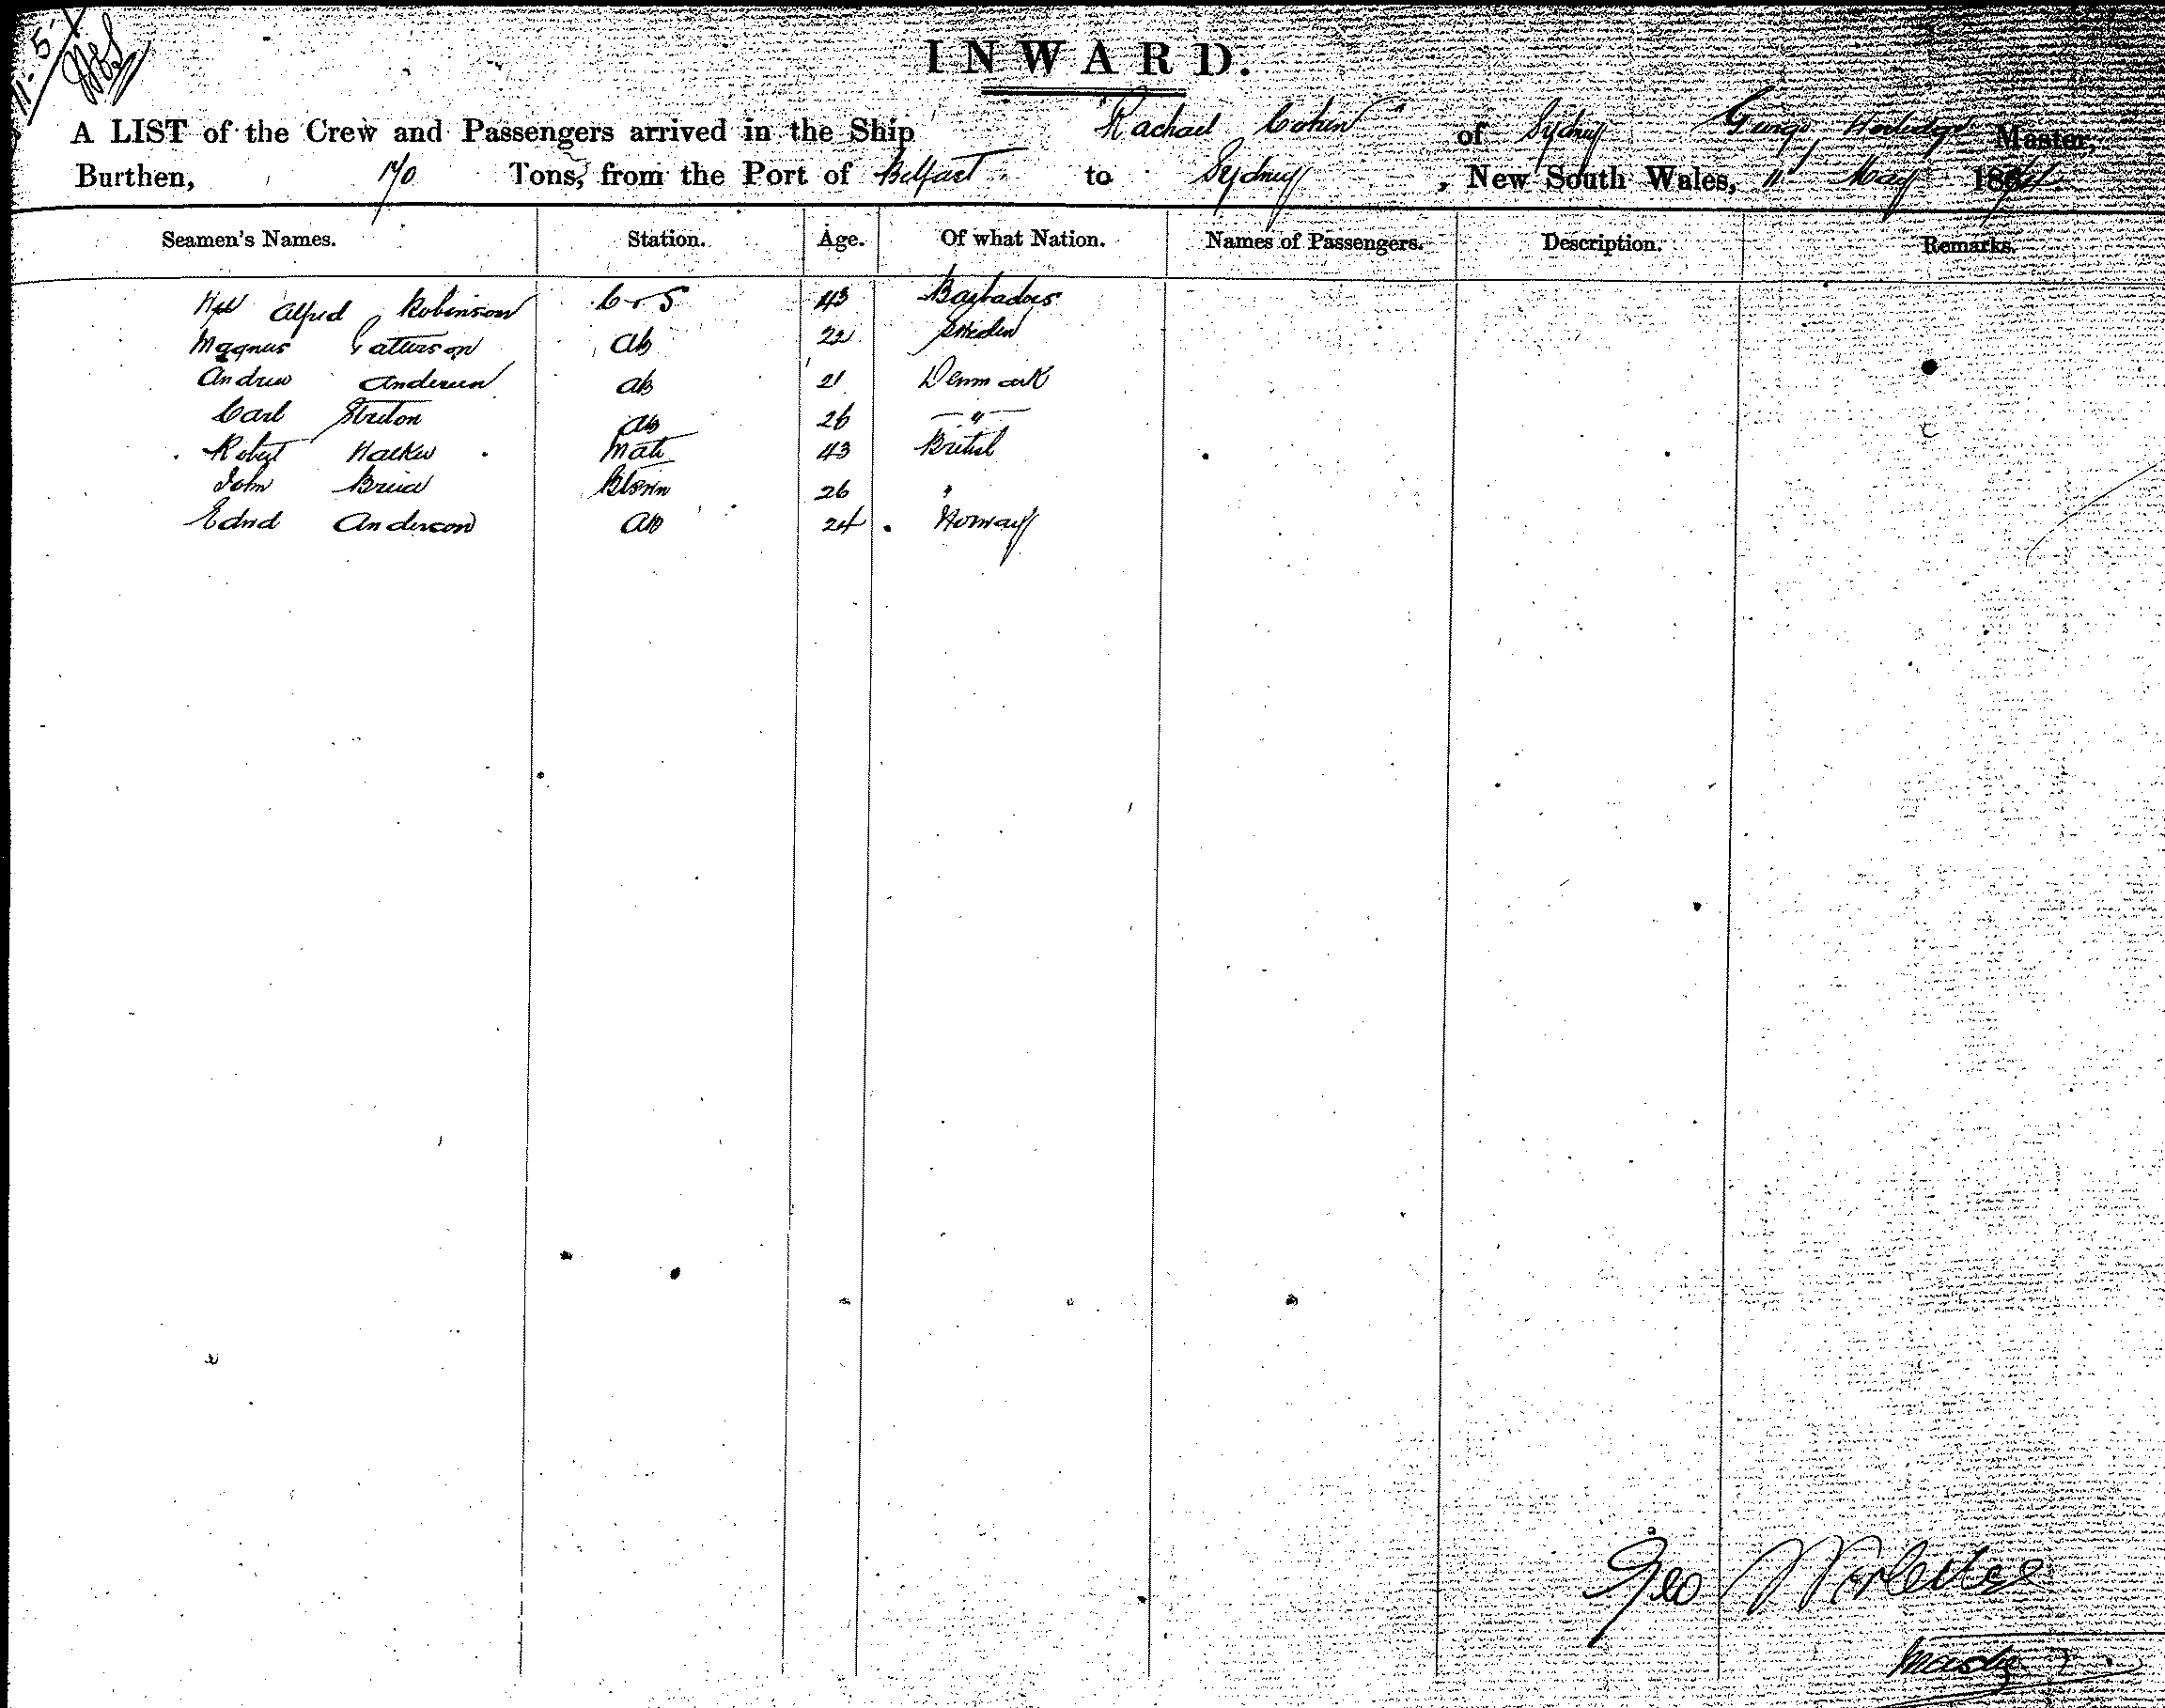 11. 5.
INWARD.
A LIST of the Crew and Passengers arrived in the Ship "Rachael Cohen" of Sydney George Master,
Burthen, 140 Tons, from the Port of Belfast to Sydney, New South Wales, 11 May 18
Seamen's Names. Station. Age. Of what Nation. Names of Passengers. Description. Remarks.
Alfred Robinson C & S 43 Barbadoes
Magnus Patterson AB 22 Sweden
Andrew Andersen AB 21 Denmark
Carl AB 26 — " —
Robert Walker Mate 43 British
John 26 "
Edwd Anderson AB 24 Norway
Geo
Master